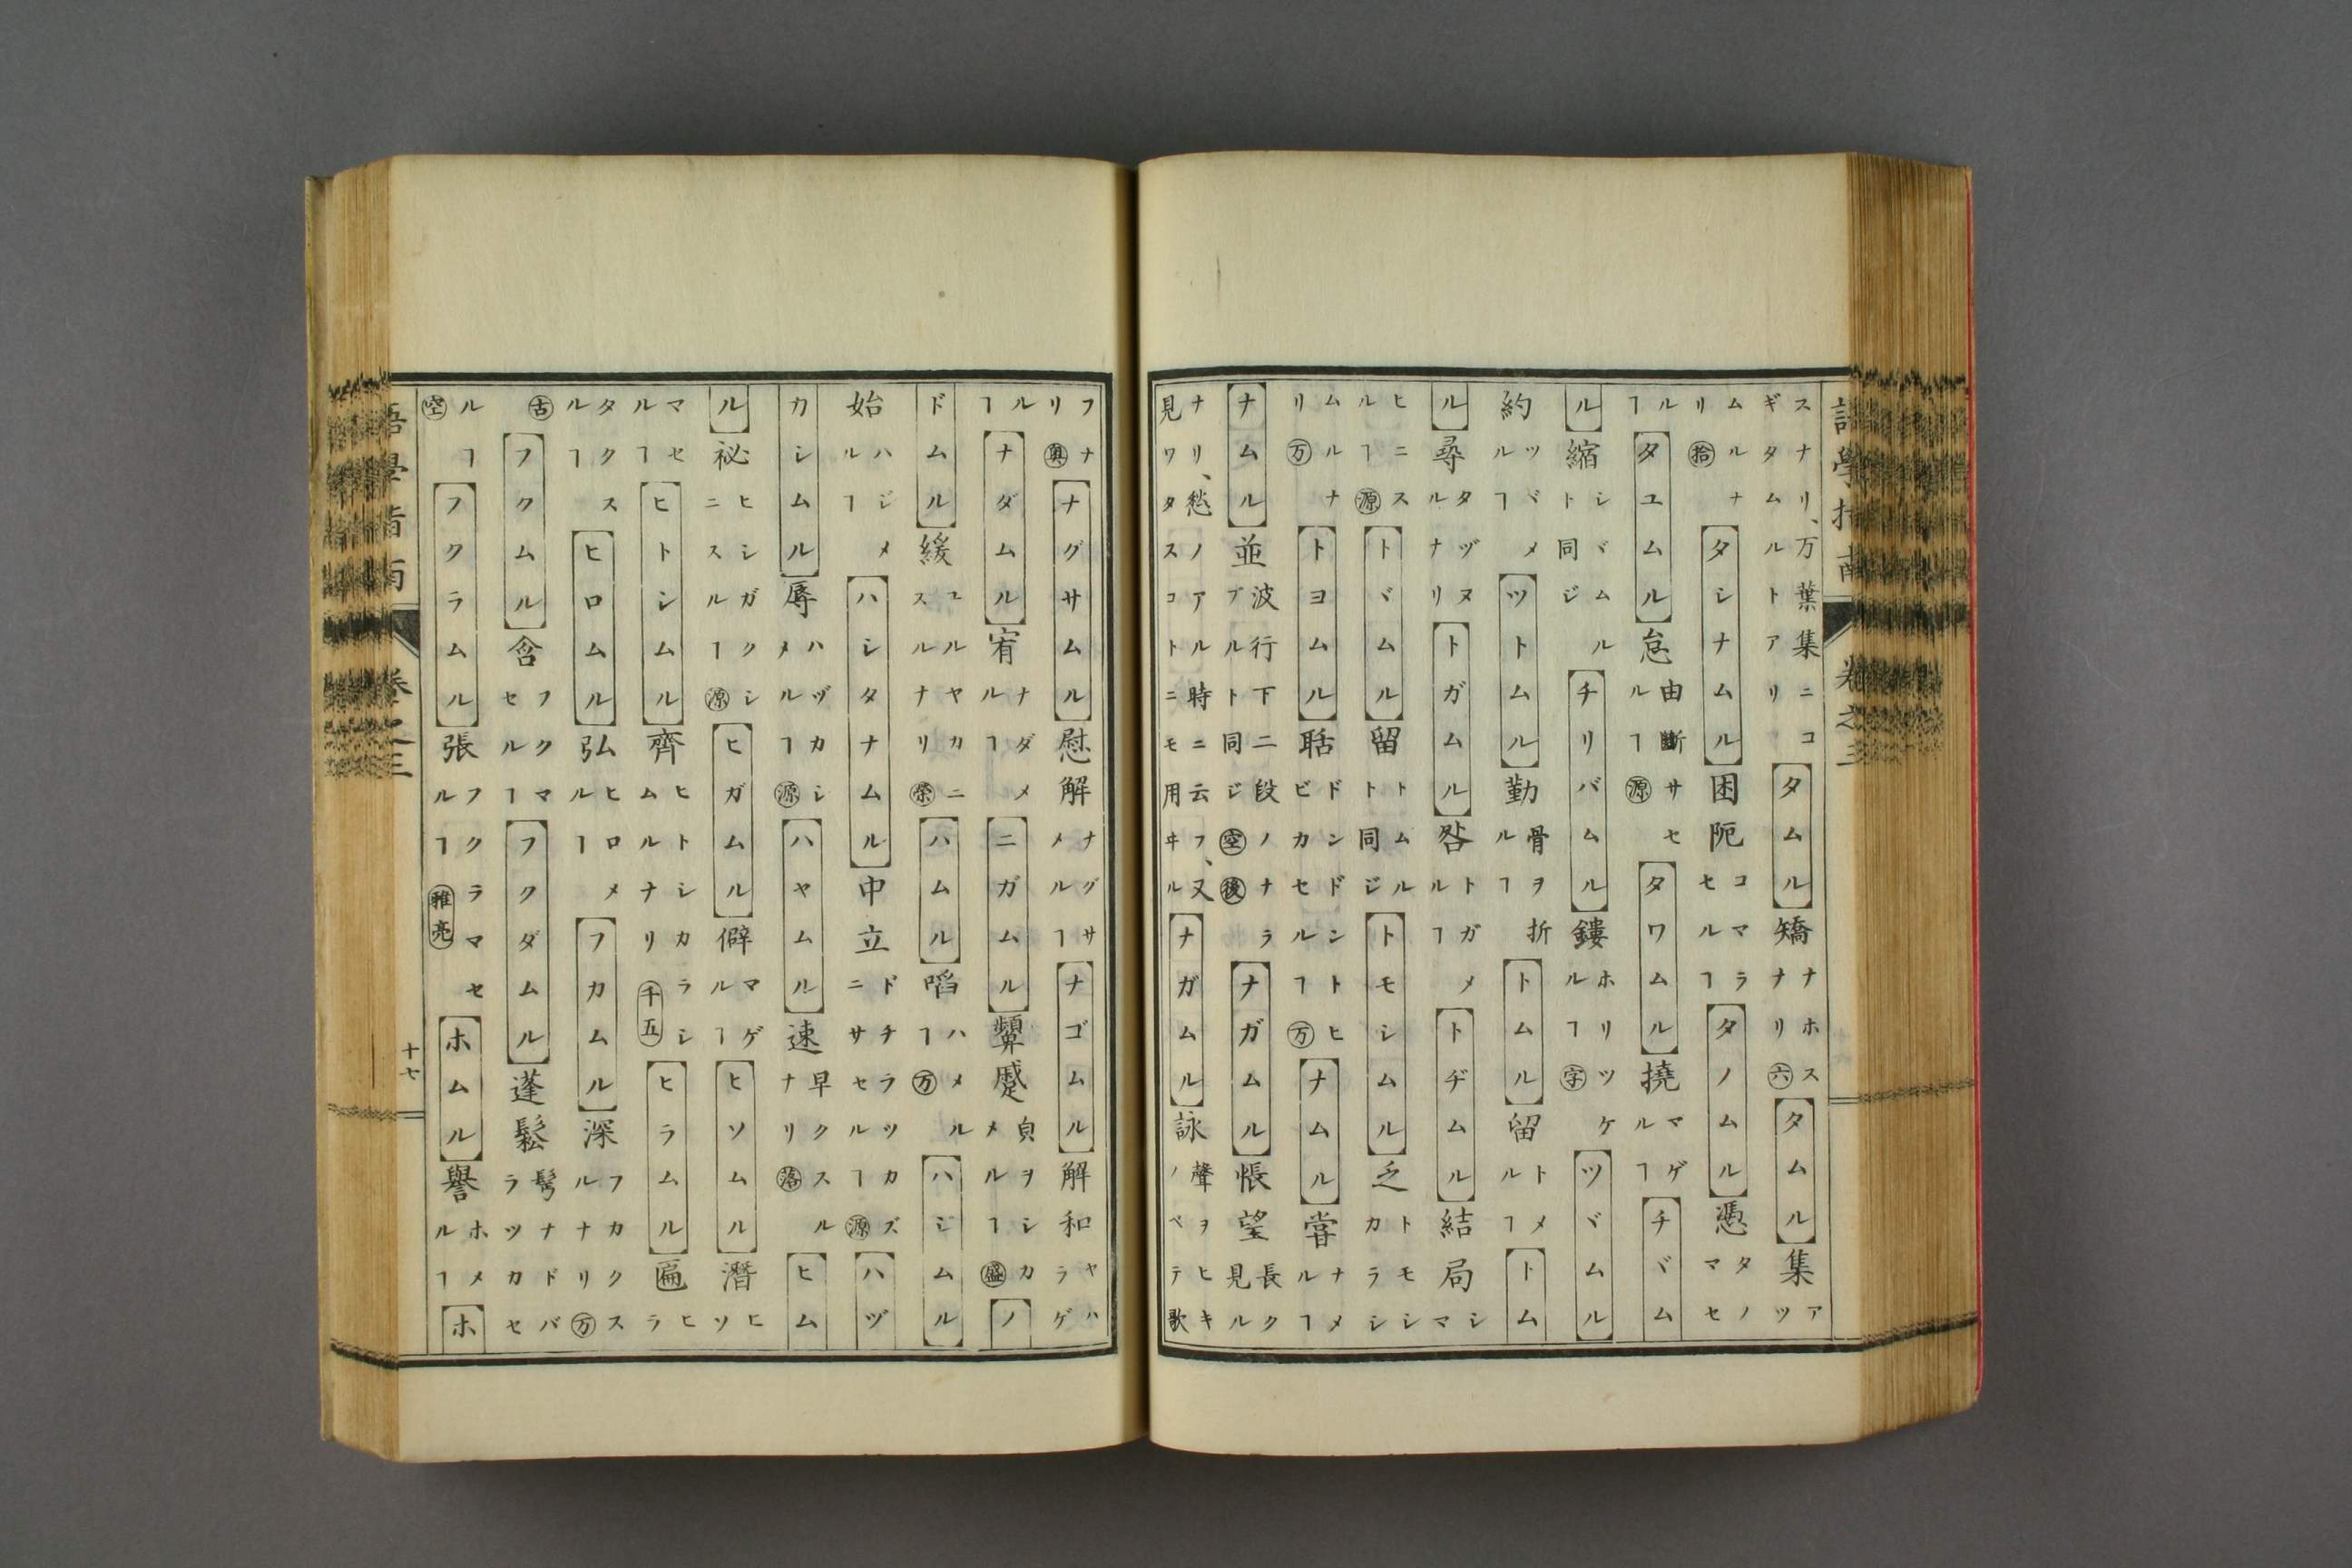 語學指南 巻之三
スナリ、万葉集ニコギタムルトアリ［タムル］矯ナホスナリ㊅［タムル］集アツ
ムルナリ拾［タシナムル］困阨コマラセルヿ［タノムル］憑タノマセ
ルヿ［タユムル］怠由斷サセルヿ源［タワムル］撓マゲルヿ［チヾム
ル］縮シヾムルト同ジ［チリバムル］鏤ホリツケルヿ字［ツヾムル］
約ツヾメルヿ［ツトムル］勤骨ヲ折ルヿ［トムル］留トメルヿ［トム
ル］尋タヅヌルナリ［トガムル］咎トガメルヿ［トヂムル］結局シマ
ヒニスルヿ源［トヾムル］留トムルト同ジ［トモシムル］乏トモシカラシ
ムルナリ万［トヨムル］聒ドンドントヒビカセルヿ万［ナムル］嘗ナメルヿ
［ナムル］並波行下二段ノナラブルト同ジ空後［ナガムル］悵望長ク見ル
ナリ、愁ノアル時ニ云フ、又見ワタスコトニモ用ヰル［ナガムル］詠聲ヲヒキノベテ歌
フナリ奥［ナグサムル］慰解ナグサメルヿ［ナゴムル］解和ヤハラゲ
ルヿ［ナダムル］宥ナダメルヿ［ニガムル］顰蹙貞ヲシカメルヿ盛［ノ
ドムル］緩ユルヤカニスルナリ榮［ハムル］㗖ハメルヿ万［ハジムル］
始ハジメルヿ［ハシタナムル］中立ドチラツカズニサセルヿ源［ハヅ
カシムル］辱ハヅカシメルヿ源［ハヤムル］速早クスルナリ落［ヒム
ル］祕ヒシガクシニスルヿ源［ヒガムル］僻マゲルヿ［ヒソムル］潛ヒソ
マセルヿ［ヒトシムル］齊ヒトシカラシムルナリ千五［ヒラムル］匾ヒラ
タクスルヿ［ヒロムル］弘ヒロメルヿ［フカムル］深フカクスルナリ万
古［フクムル］含フクマセルヿ［フクダムル］蓬鬆髩ナドバラツカセ
ルヿ空［フクラムル］張フクラマセルヿ雅亮［ホムル］譽ホメルヿ［ホ
語學指南 巻之三 十七